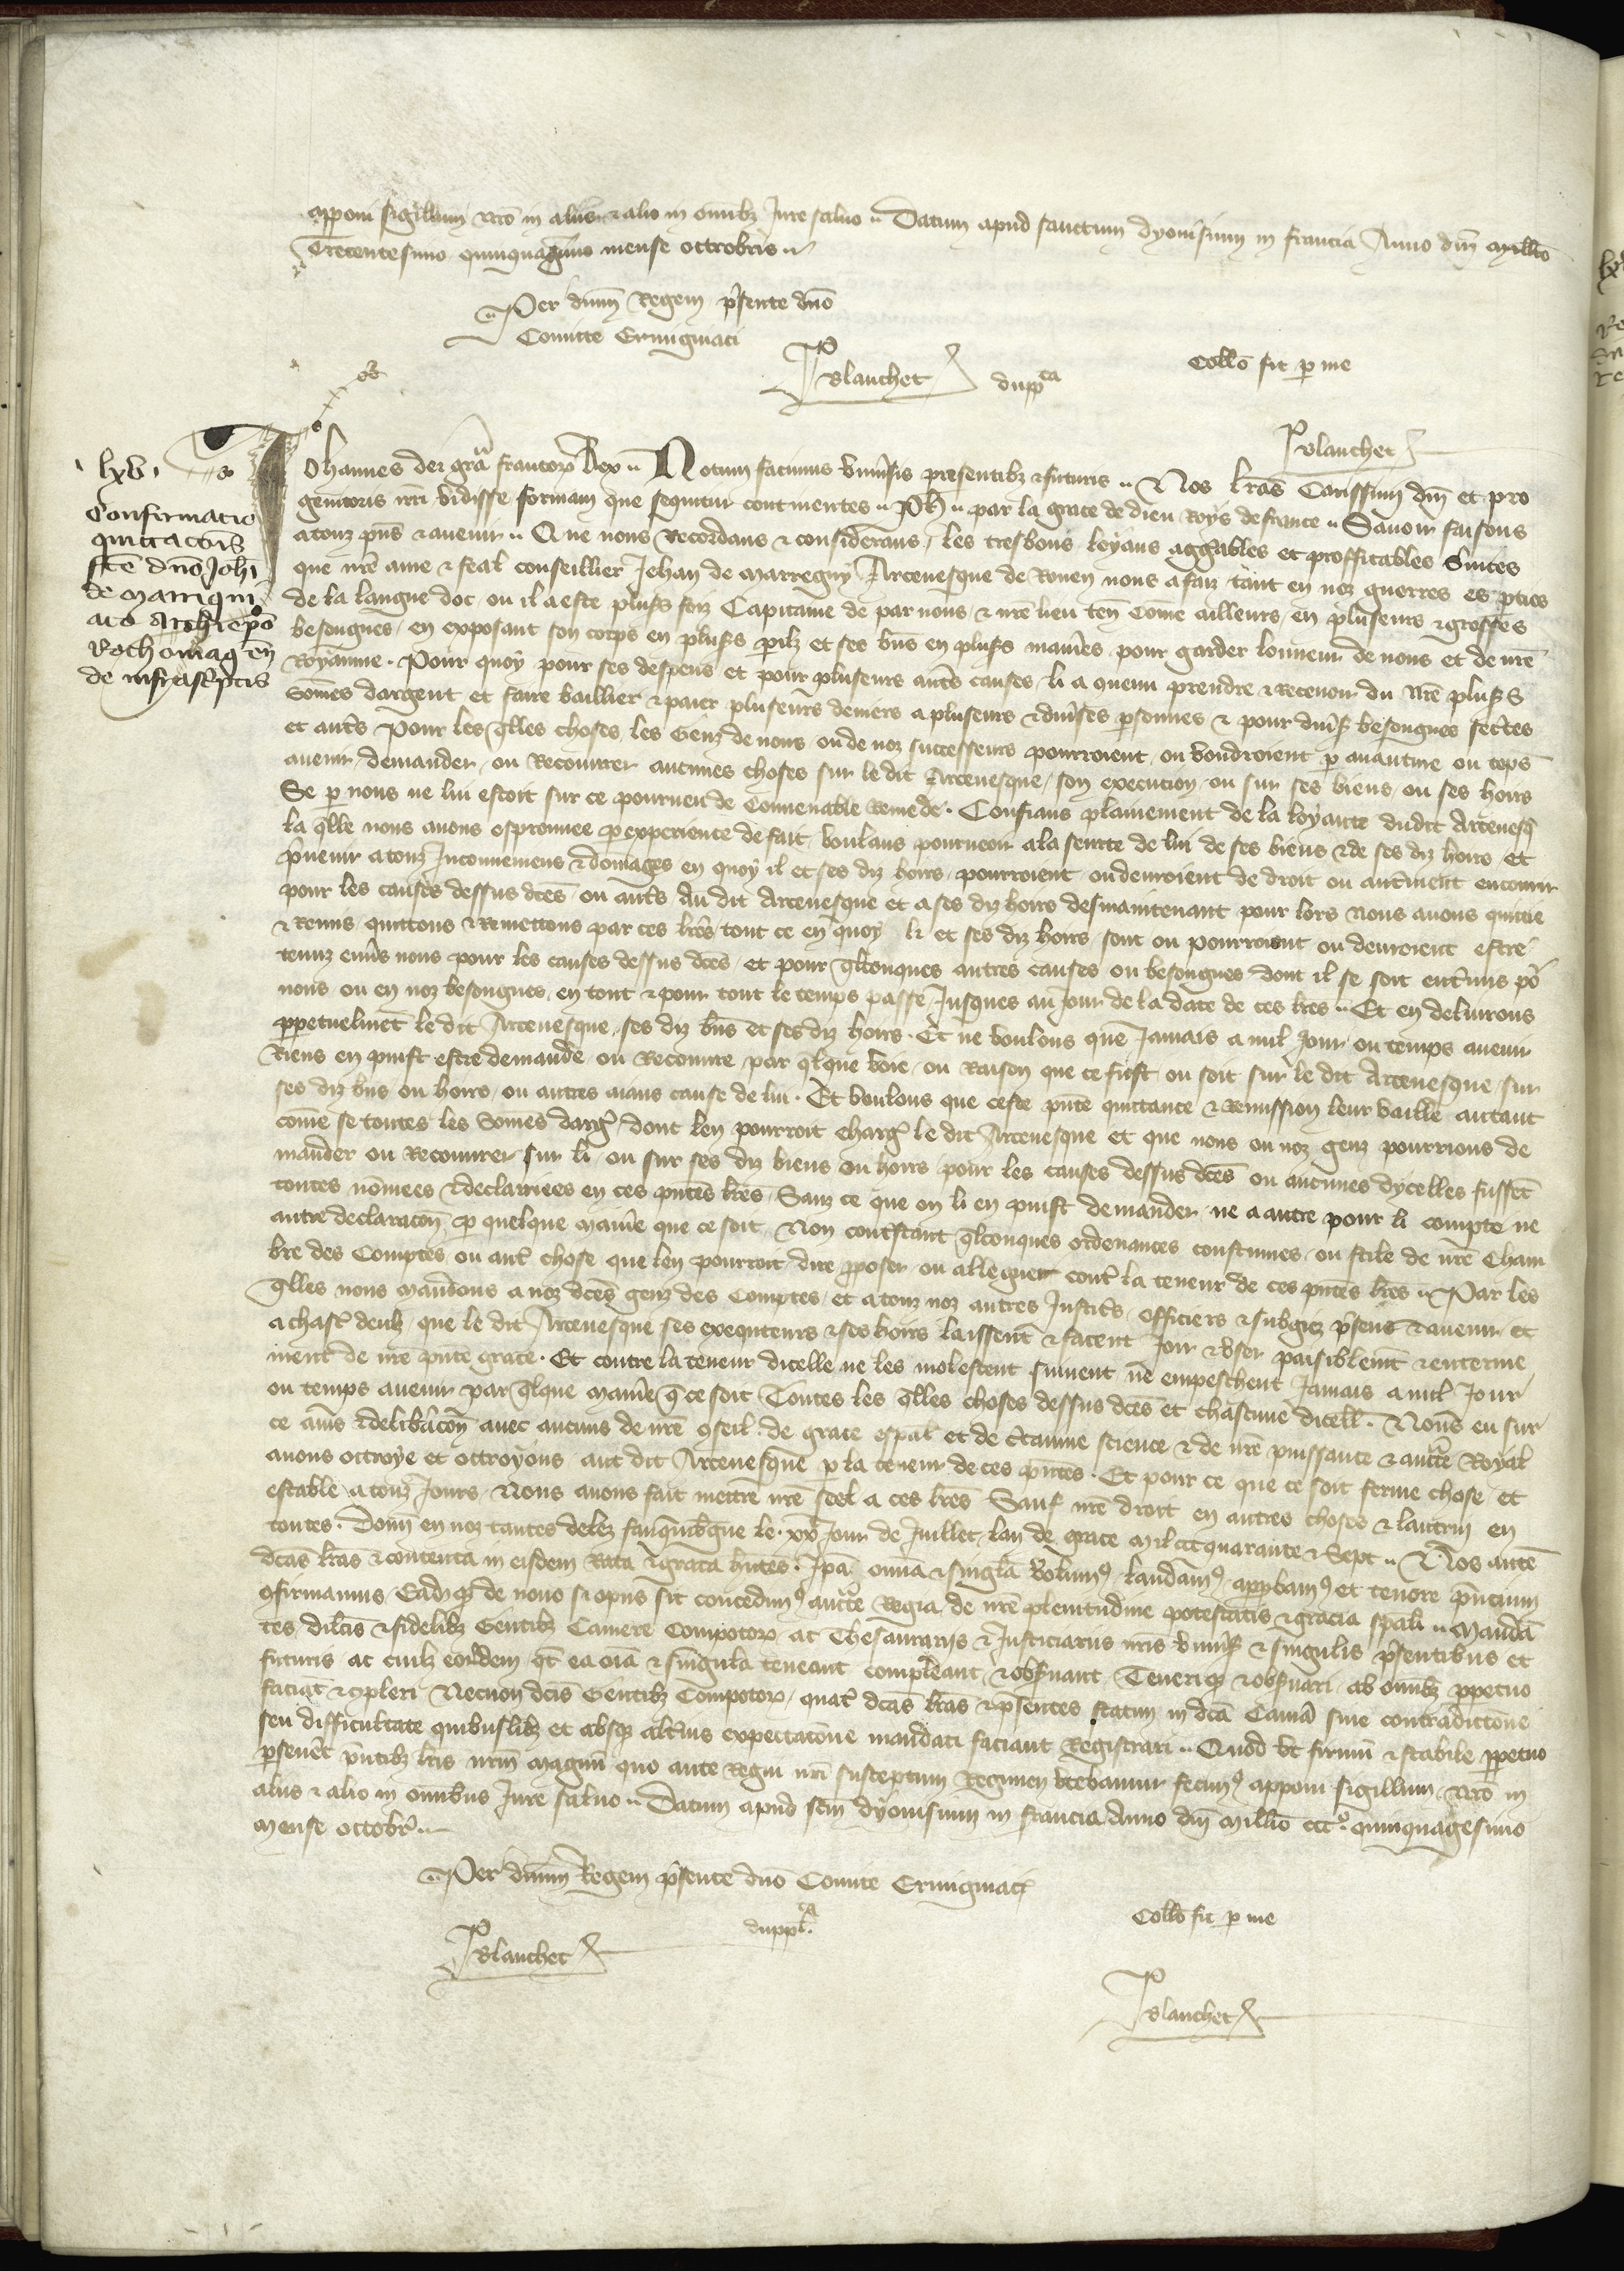 apponi sigillum nr̄o in aliis ⁊ alio in omībꝫ Jure saluo .. Datum apud sanctum dyonisium in francia Anno dn̄i millō
Trecentesimo quinquagīmo mense octrobris ..
Per dnū̄m Regem pr̄sente dn̄o
Comitte Ermigniaci
P Blanchet
dupp̄ᶜᵃ
Collō fit ꝑ me
P Blanchet
lxv
Confirmatio
quittac̄ois
fc̄te dn̄o Joh̄i
de marrigni
aco Archiep̄o
Rothomaḡ en̄
de infrasc̄ptis
Johannes dei gr̄a francoꝝ Rex .. Notum facimus vniūsis presentibꝫ ⁊ futuris .. Nos lr̄as Carissimi dn̄i et pro
genitoris nr̄i vidisse formam que sequitur continentes .. Ph̄ .. par la grace de dieu Roys de france .. Sauoir faisons
a touz pn̄s ⁊ auenir .. Que nous Recordans ⁊ considerans, les tresbons loyaus aggr̄ables et proffitables s̄uices
que nr̄e ame ⁊ feal conseillier Jehan de marregny Arceuesque de Rouen nous a faiz tant en noz guerres es ꝑties
de la langue doc, ou il a este plus̄s foiz Capitaine de par nous ⁊ nr̄e lieu ten̄ Come ailleurs, en pluseurs ⁊ grosses
besongnes, en exposant son corps en plus̄s ꝑilz et ses biīs en plus̄s man̄ies, pour garder lonneur de nous et de nr̄e
Royaume. Pour quoy pour ses despens et pour pluseurs aut̄s causes, li a quenu prendre ⁊ Receuoir du nr̄e plus̄s
som̄es dargent et faire baillier ⁊ paier pluseurs deniers a pluseurs ⁊ diūses ꝑsonnes ⁊ pour diūs̄ besongnes secr̄es
et aut̄s Pour les q̄lles choses, les Genz de nous ou de noz successeurs pourroient, ou voudroient ꝑ auanture ou tēps
auenir, demander, ou Recouurer aucunes choses sur le dit Arceuesque, son execution, ou sur ses biens, ou ses hoirs
Se ꝑ nous ne lui estoit sur ce pourueu de conuenable remede. Confians plainement de la loyaute dudit Arceuesq̄
la q̄lle nous auons esprouuee ꝑ experience de fait, voulans pourueoir a la seurte de lui de ses biens ⁊ de ses diz hoirs, et
pr̄uenir a touz Inconueniens ⁊ domages en quoy il et ses diz hoirs, pourroient, ou deuroient de droit ou aut̄ment encourir
pour les causes dessus dc̄es ou aut̄s Au dit Arceuesque et a ses diz hoirs desmaintenant pour lors nous auons quittie
⁊ Remis, quittons ⁊ Remettons par ces lr̄es, tout ce en quoy li et ses diz hoirs sont ou pourroient ou deuroient estre
tenuz enūs nous pour les causes dessus dc̄es, et pour q̄lconques autres causes ou besongnes dont il se soit ent̄mis po᷑
nous ou en noz besongnes, en tout ⁊ pour tout le temps passe, Jusques au Jour de la date de ces lr̄es .. Et en deliurons
ꝑpetuelmēt le dit Arceuesque, ses diz biīs et ses diz hoirs. Et ne voulons que Jamais a nul Jour ou temps auenir
Riens en puist estre demande ou Recouure, par q̄lque voie, ou Raison que ce fust ou soit sur le dit Arceuesque, sur
ses diz biīs ou hoirs, ou autres aians cause de lui. Et voulons que ceste pn̄te quittance ⁊ Remission leur vaille autant
com̄e se toutes les somes darg᷑, dont len pourroit charg᷑ le dit Arceuesque et que nous ou noz genz pourrions de
mander ou Recouurer sur li ou sur ses diz biens ou hoirs, pour les causes dessus dc̄es ou aucunes dycelles fussēt
toutes nom̄ees ⁊ declairiees en ces pn̄tes lr̄es, Sanz ce que on li en puist demander ne a autre pour li compte ne
autre declarac̄on, ꝑ quelque man̄ie que ce soit, Non contr̄stant q̄lconques ordenances coustumes, ou stile de nr̄e Cham
bre des Comptes, ou aut᷑ chose que len pourroit dire ꝓposer ou alleguer cont᷑ la teneur de ces pn̄tes lr̄es .. Par les
q̄lles nous mandons a noz dc̄es genz des Comptes, et a touz noz autres Justic̄s, officiers ⁊ subgiez pr̄sens ⁊ auenir, et
a chasc᷑ deulz, que le dit Arceuesque ses exequteurs ⁊ ses hoirs laissent ⁊ facent Joir ⁊ vser paisiblem̄t ⁊ enterine
ment de nr̄e pn̄te grace. Et contre la teneur dicelle ne les molestent, suiuent ne empeschent Jamais a nul Jour
ou temps auenir par q̄lque man̄ie q̄ ce soit Toutes les q̄lles choses dessus dc̄es et chascune dicell᷑. Nous eu sur
ce auīs ⁊ delib̄acōn auec aucuns de nr̄e ꝯseil de grace esp̄al et de c̄taine science ⁊ de nr̄e puissance ⁊ auct̄e Royal
auons octroye et octroyons aut dit Arceuesque ꝑ la teneur de ces pn̄tes. Et pour ce que ce soit ferme chose et
estable a touz Jours, Nous auons fait mettre nr̄e seel a ces lr̄es Sauf nr̄e droit en autres choses ⁊ lautrui en
toutes. Donn̄ en noz tantes delez fauquib̄gue le. xxᵉ Jour de Juillet lan de grace mil ccc quarante ⁊ Sept .. Nos autē
dc̄as lr̄as ⁊ contenta in eisdem Rata ⁊ grata hn̄tes. Jp̄a omīa ⁊ singl̄a volumꝰ, laudamꝰ, appꝓbamꝰ et tenore pn̄cium
ꝯfirmamus, Eadqꝫ de nouo si opus sit concedimꝰ auct̄e Regia de nr̄e plenitudine potestatis ⁊ gracia sp̄ali .. Mandā
tes dil̄cis ⁊ fidelibꝫ Gentibꝫ Camere compotoꝝ ac Thesaurariis ⁊ Justiciariis nr̄is vniūs̄ ⁊ singulis pr̄sentibus et
futuris ac cuilꝫ eoꝝdem, q̄t ea om̄ia ⁊ singula teneant compleant ⁊ obs̄uant, Teneriqꝫ ⁊ obs̄uari, ab omībꝫ ꝑpetuo
faciāt ⁊ ꝯpleri Necnon dc̄is Gentibꝫ Compotoꝝ, quat᷑ dc̄as lr̄as ⁊ pr̄sentes statim in dc̄a Cam̄a sine contradictōne
seu difficultate quibuslibꝫ et absqꝫ alt̄ius expectac̄one mandati faciant Registrari .. Quod vt firmū ⁊ stabile ꝑpetuo
ꝑseuēt pn̄tibꝫ lr̄is nr̄m magnū quo ante Regni nr̄i susceptum Regimen vtebamur fecimꝰ apponi sigillum. Nr̄o in
aliis ⁊ alio in omnibus Jure saluo .. Datum apud sc̄m dyonisium in francia Anno dn̄i millō cccº. quinquagesimo
mense octobr᷑ ..
Per dnū̄m Regem pr̄sente dn̄o Comite Ermigniaci
P Blanchet
duppl̄ᶜᵃ
Collō fit ꝑ me
P Blanchet